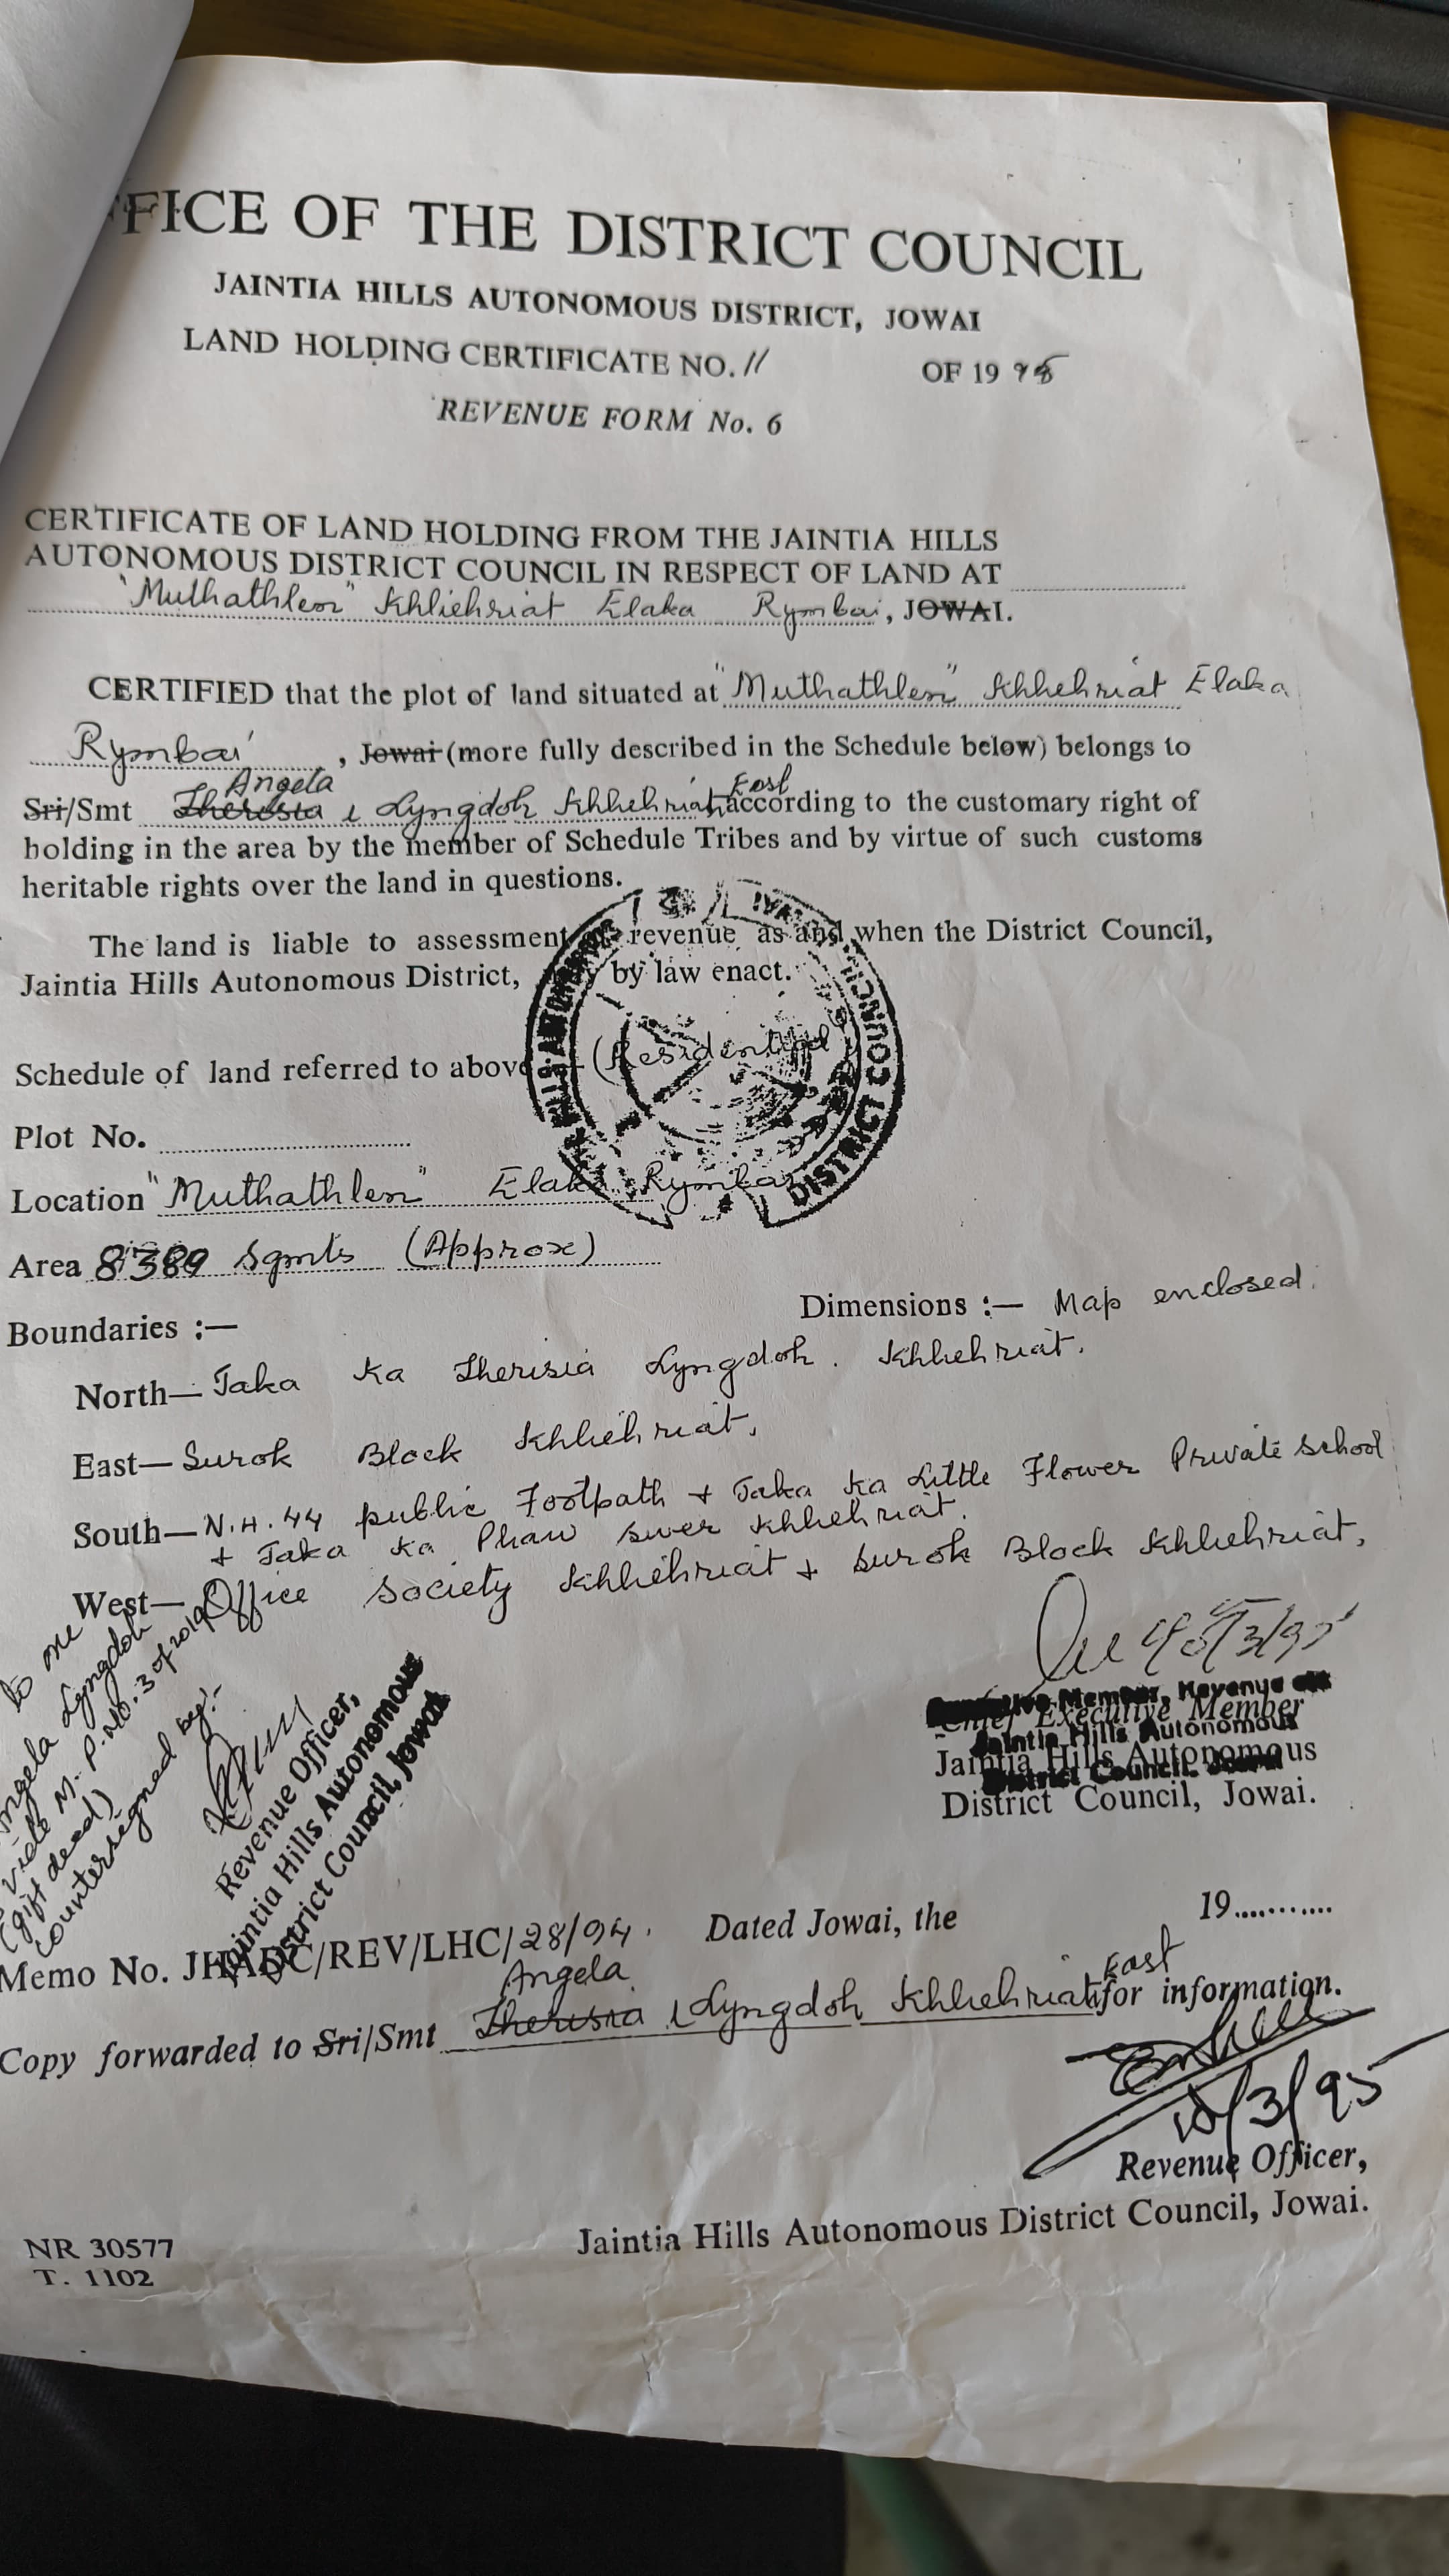 FFICE OF THE DISTRICT COUNCIL
JAINTIA HILLS AUTONOMOUS DISTRICT, JOWAI
LAND HOLDING CERTIFICATE NO. 11 OF 19 95
REVENUE FORM No. 6
CERTIFICATE OF LAND HOLDING FROM THE JAINTIA HILLS
AUTONOMOUS DISTRICT COUNCIL IN RESPECT OF LAND AT
"Muthathlen" Khliehriat Elaka Rymbai, JOWAI.
CERTIFIED that the plot of land situated at "Muthathlen" Khliehriat Elaka
Rymbai, Jowai (more fully described in the Schedule below) belongs to
Angela East
Sri/Smt Therisia Lyngdoh Khliehriat, according to the customary right of
holding in the area by the member of Schedule Tribes and by virtue of such customs
heritable rights over the land in questions.
The land is liable to assessment revenue as and when the District Council,
Jaintia Hills Autonomous District, by law enact.
Schedule of land referred to above (Residential)
Plot No.
Location "Muthathlen" Elaka Rymbai
Area 8389 Sqmts (Approx)
Boundaries :— Dimensions :— Map enclosed.
North— Taka Ka Therisia Lyngdoh. Khliehriat.
East— Surok Block Khliehriat.
South— N.H. 44 public Footpath + Taka ka Little Flower Private School
+ Taka Ka Phaw Swer Khliehriat.
West— Office Society Khliehriat + Surok Block Khliehriat,
to me
Angela Lyngdoh
vide M. P. No. 3 of 2019
(gift deed)
Countersigned by:-
Revenue Officer,
Jaintia Hills Autonomous
District Council, Jowai
Chief Executive Member
Jaintia Hills Autonomous
District Council, Jowai.
Memo No. JHADC/REV/LHC/28/94. Dated Jowai, the 19..........
Angela East
Copy forwarded to Sri/Smt Therisia Lyngdoh Khliehriat for information.
10/3/95
Revenue Officer,
Jaintia Hills Autonomous District Council, Jowai.
NR 30577
T. 1102